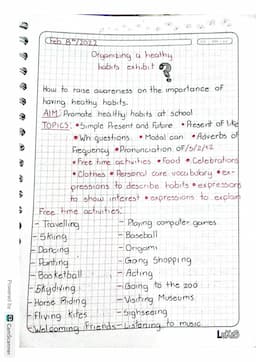 Feb 8th/2022
Organizing a healthy
habits exhibit?
How to raise awareness on the importance of
having healthy habits.
AIM: Promote healthy habits at school
TOPICS: •Simple Present and Future •Present of like
•Wh questions. •Modal can •Adverbs of
Frequency •Pronunciation of /s/z/ız
•Free time activities •Food •Celebrations
•Clothes •Personal care vocabulary •ex-
pressions to describe habits •expressions
to show interest •expressions to explain
Free time activities.
- Travelling - Playing computer games
- Skiing - Baseball
- Dancing - Origami
- Painting - Going Shopping
- Basketball - Acting
- Skydiving - Going to the zoo
- Horse Riding - Visiting Museums
- Flying Kites - Sighseeing
- Welcoming Friends - Listening to music
Powered by CamScanner